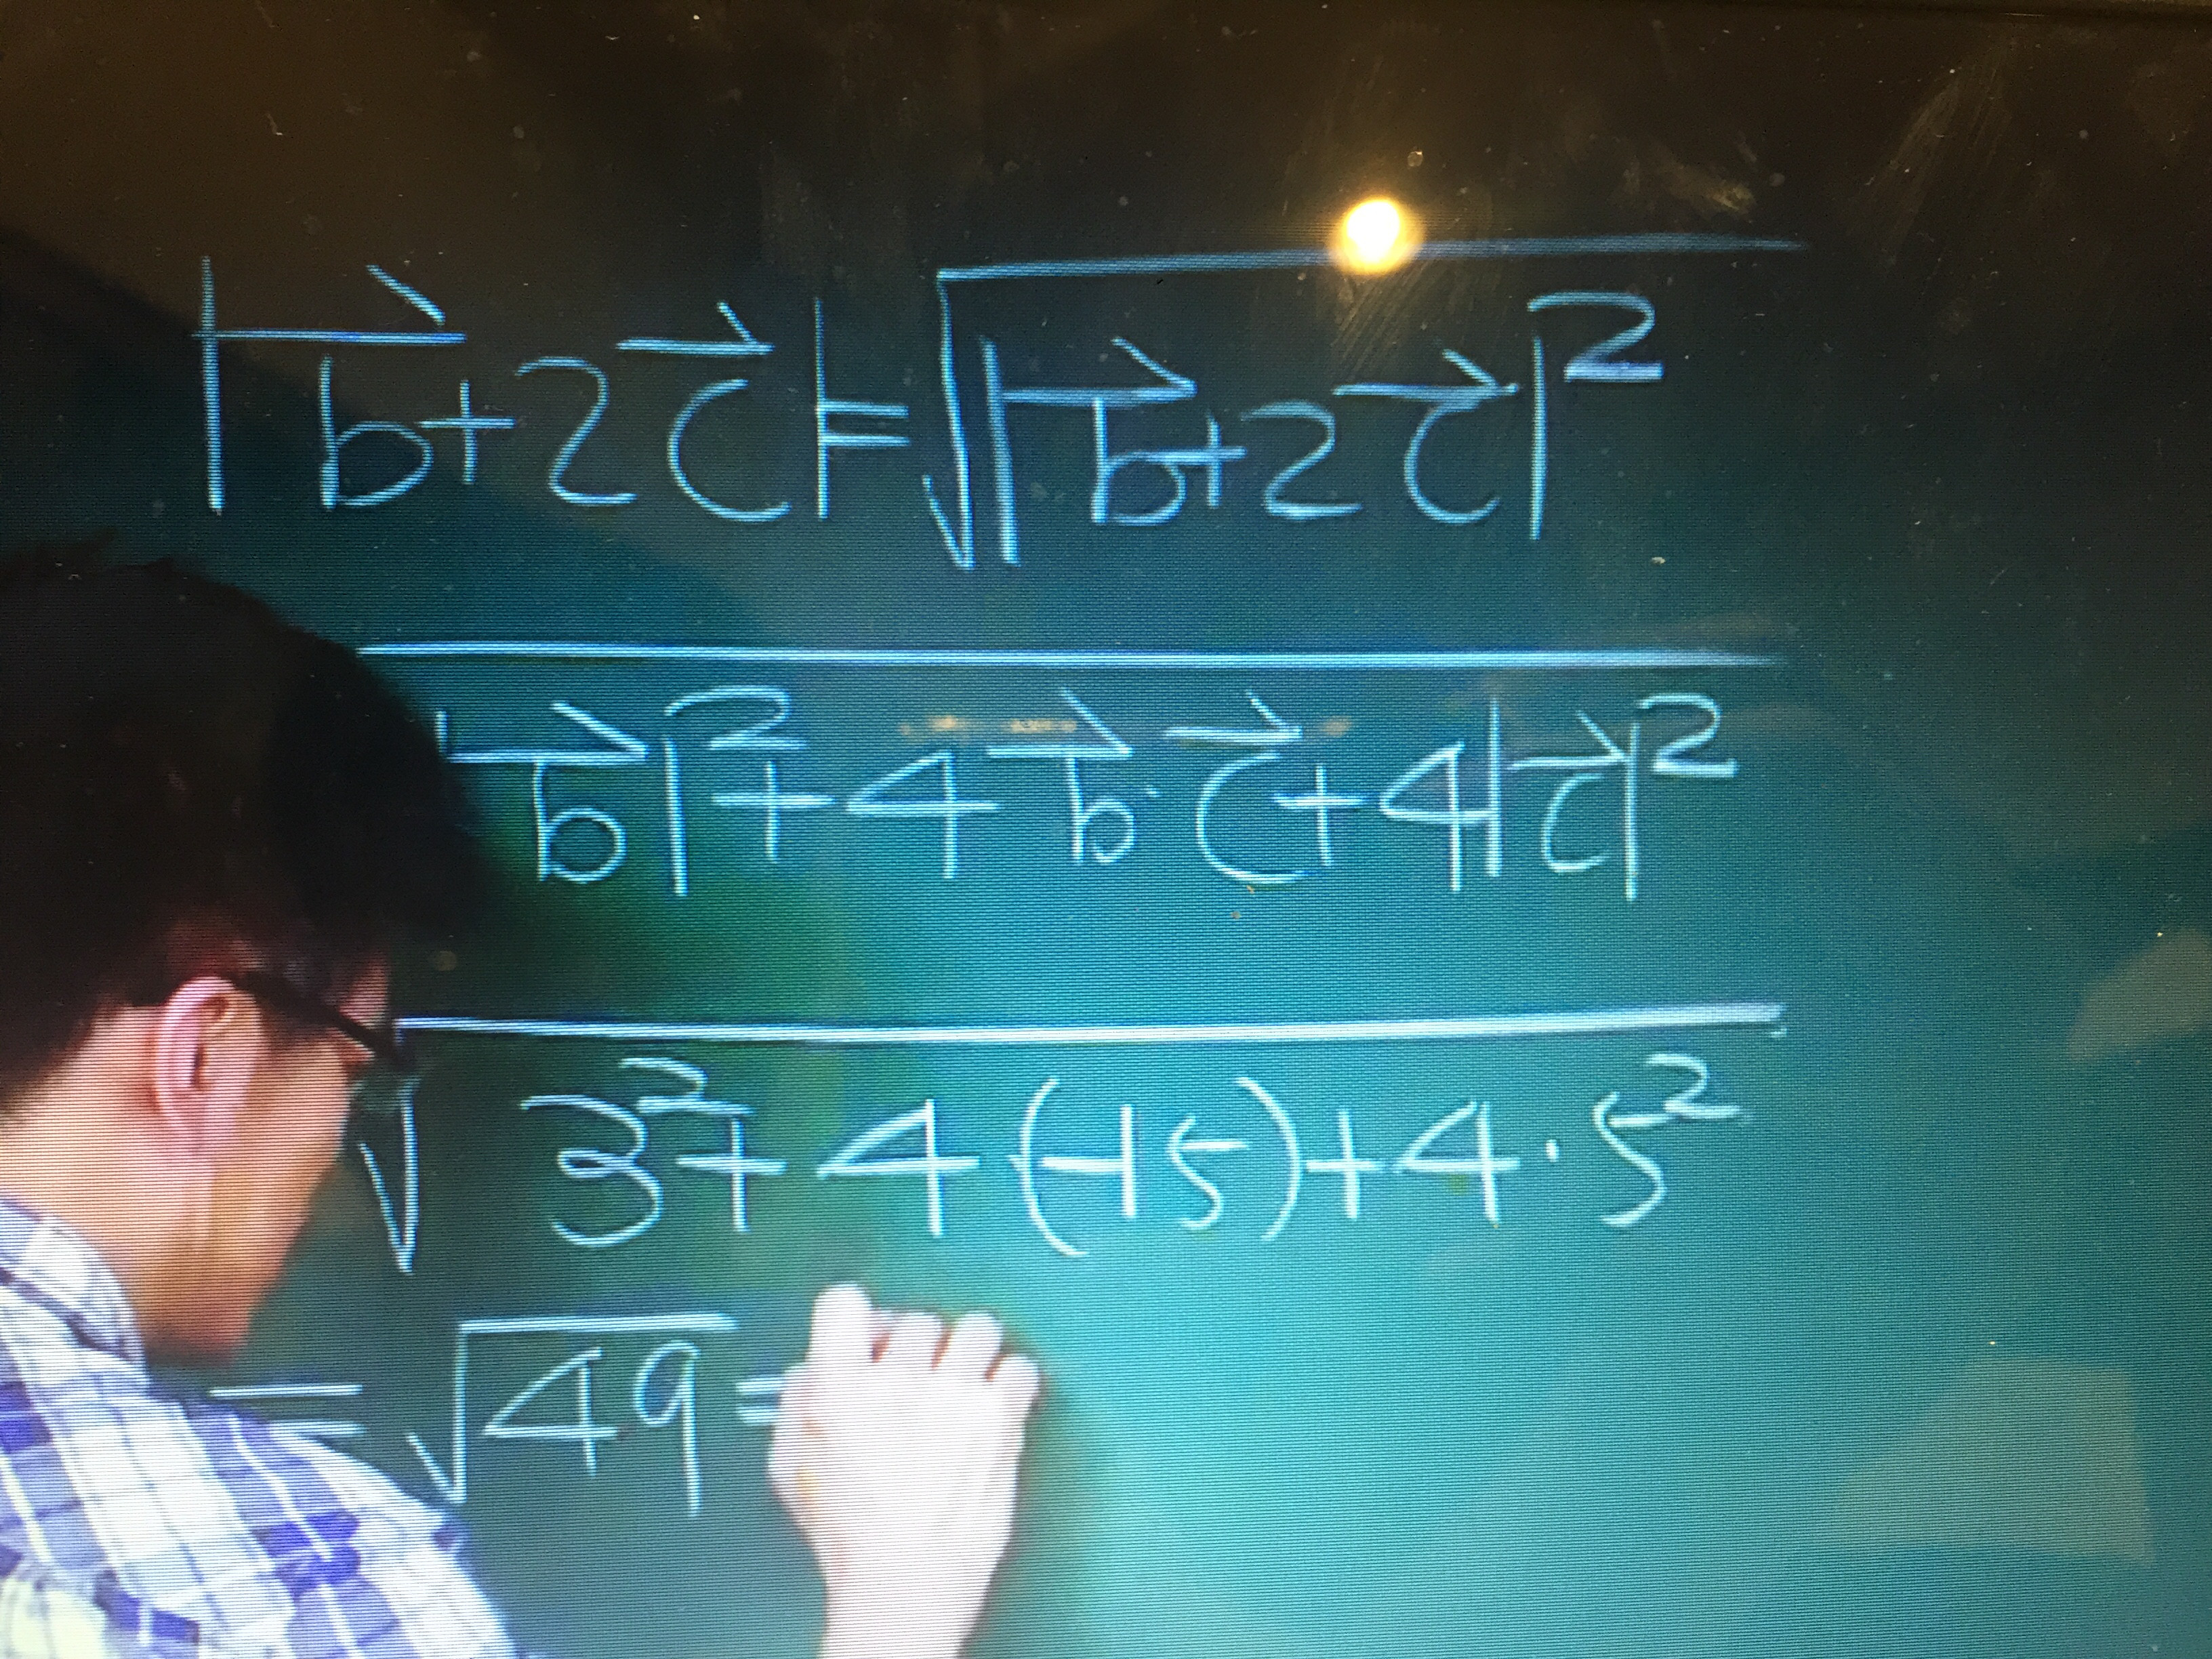 |b⃗+2c⃗|=√|b⃗+2c⃗|²
b⃗|²+4b⃗·c⃗+4|c⃗|²
√3²+4(-15)+4·5²
=√49=